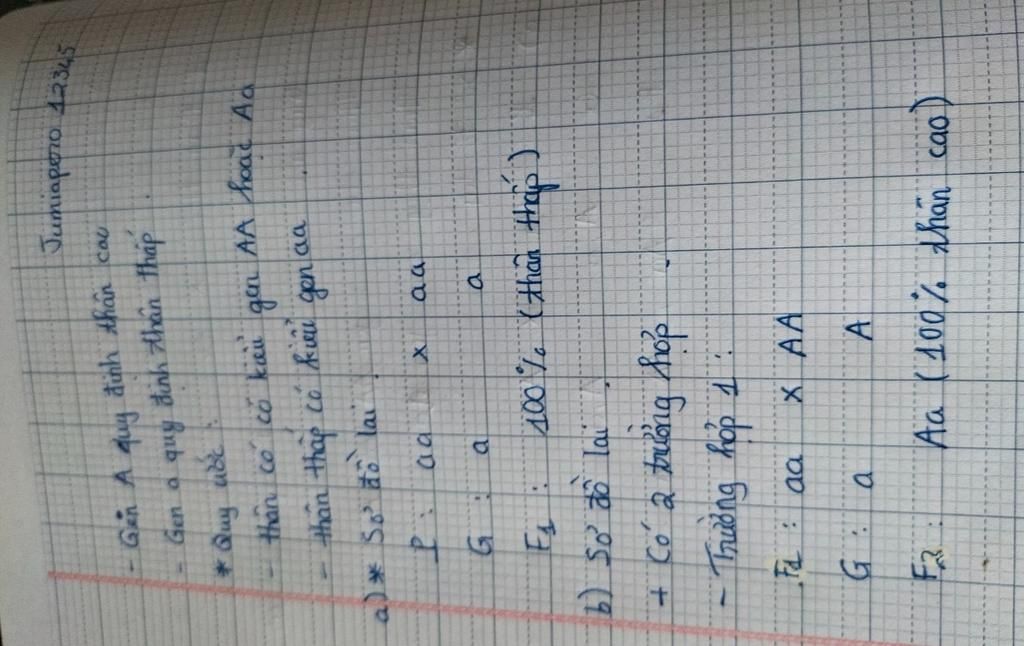 Jumiapero 12345
- Gen A quy định thân cao
- Gen a quy định thân thấp
* Quy ước :
- thân có có kiểu gen AA hoặc Aa
- thân thấp có kiểu gen aa
a) * Sơ đồ lai :
P : aa x aa
G : a a
F1 : 100% (thân thấp)
b) Sơ đồ lai :
+ Có 2 trường hợp
- Trường hợp 1 :
F1 : aa x AA
G : a A
F2 : Aa (100% thân cao)